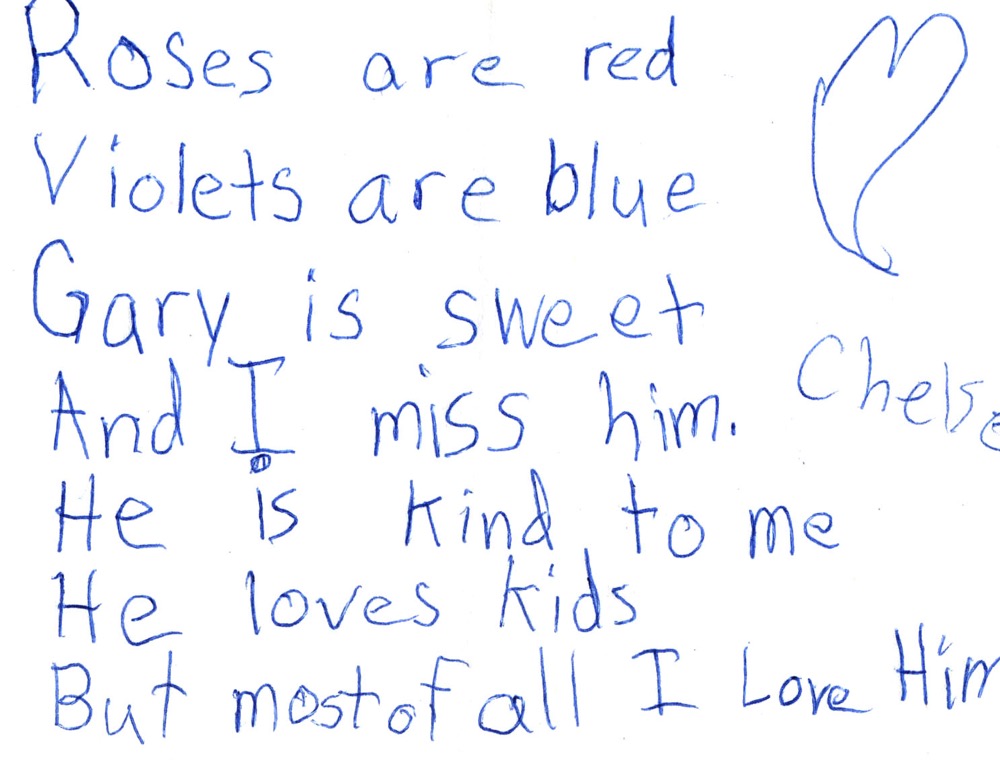 Roses are red
Violets are blue
Gary is sweet
And I miss him.
Chelse
He is kind to me
He loves kids
But most of all I Love Him